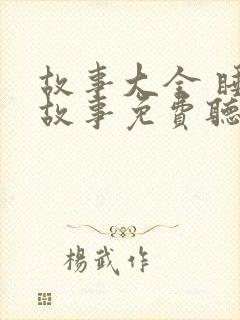 故事大全 睡
故事免費聽
楊武作